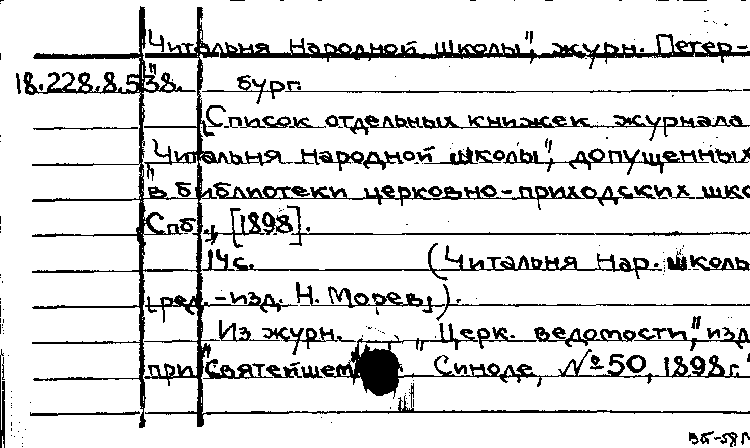 "Читальня Народной школы", журн. Петер-
18.228.8.538. бург.
[Список отдельных книжек журнала
"Читальня народной школы", допущенных
в библиотеки церковно-приходских шко
Спб., [1898].
14с. (Читальня Нар. школы
[ред.-изд. Н. Морев]).
Из журн. „Церк. ведомости", изд
при Святейшем Синоде, №50, 1898г."